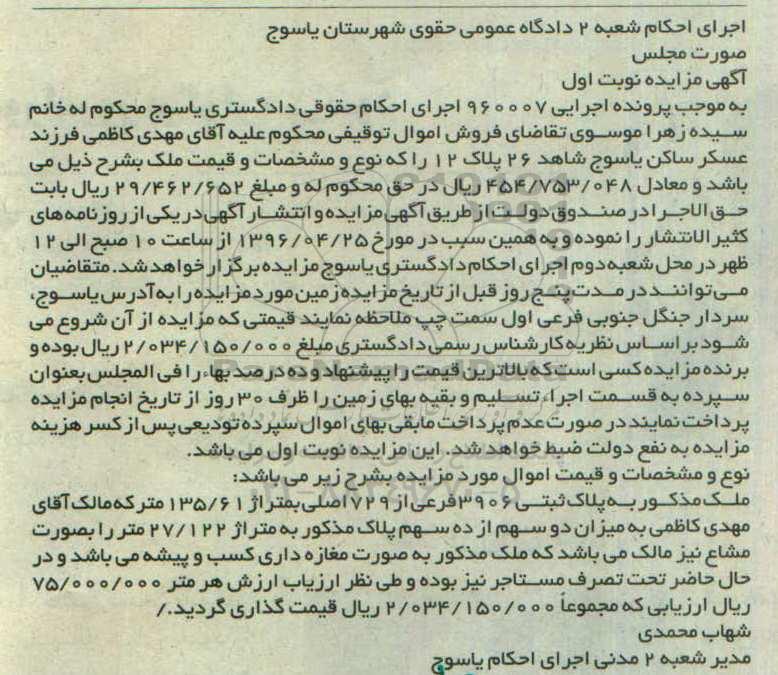 اجرای احکام شعبه ۲ دادگاه عمومی حقوی شهرستان یاسوج
صورت مجلس
آگهی مزایده نوبت اول
به موجب پرونده اجرایی ۹۶۰۰۰۷ اجرای احکام حقوقی دادگستری یاسوج محکوم له خانم
سیده زهرا موسوی تقاضای فروش اموال توقیفی محکوم علیه آقای مهدی کاظمی فرزند
عسکر ساکن یاسوج شاهد ۲۶ پلاک ۱۲ را که نوع و مشخصات و قیمت ملک بشرح ذیل می
باشد و معادل ۴۵۴/۷۵۳/۰۴۸ ریال در حق محکوم له و مبلغ ۲۹/۴۶۲/۶۵۲ ریال بابت
حق الاجرا در صندوق دولت از طریق آگهی مزایده و انتشار آگهی در یکی از روزنامه های
کثیر الانتشار را نموده و به همین سبب در مورخ ۱۳۹۶/۰۴/۲۵ از ساعت ۱۰ صبح الی ۱۲
ظهر در محل شعبه دوم اجرای احکام دادگستری یاسوج مزایده برگزار خواهد شد. متقاضیان
می توانند در مدت پنج روز قبل از تاریخ مزایده زمین مورد مزایده را به آدرس یاسوج،
سردار جنگل جنوبی فرعی اول سمت چپ ملاحظه نمایند قیمتی که مزایده از آن شروع می
شود بر اساس نظریه کارشناس رسمی دادگستری مبلغ ۲/۰۳۴/۱۵۰/۰۰۰ ریال بوده و
برنده مزایده کسی است که بالاترین قیمت را پیشنهاد و ده درصد بهاء را فی المجلس بعنوان
سپرده به قسمت اجراء تسلیم و بقیه بهای زمین را ظرف ۳۰ روز از تاریخ انجام مزایده
پرداخت نمایند در صورت عدم پرداخت مابقی بهای اموال سپرده تودیعی پس از کسر هزینه
مزایده به نفع دولت ضبط خواهد شد. این مزایده نوبت اول می باشد.
نوع و مشخصات و قیمت اموال مورد مزایده بشرح زیر می باشد:
ملک مذکور به پلاک ثبتی ۳۹۰۶ فرعی از ۷۲۹ اصلی بمتراژ ۱۳۵/۶۱ متر که مالک آقای
مهدی کاظمی به میزان دو سهم از ده سهم پلاک مذکور به متراژ ۲۷/۱۲۲ متر را بصورت
مشاع نیز مالک می باشد که ملک مذکور به صورت مغازه داری کسب و پیشه می باشد و در
حال حاضر تحت تصرف مستاجر نیز بوده و طی نظر ارزیاب ارزش هر متر ۷۵/۰۰۰/۰۰۰
ریال ارزیابی که مجموعاً ۲/۰۳۴/۱۵۰/۰۰۰ ریال قیمت گذاری گردید./
شهاب محمدی
مدیر شعبه ۲ مدنی اجرای احکام یاسوج